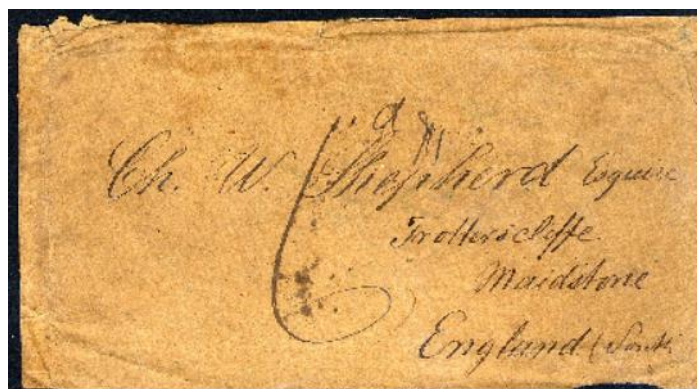 Ch. W. Shepherd Esquire
Trotterscliffe
Maidstone
England (South